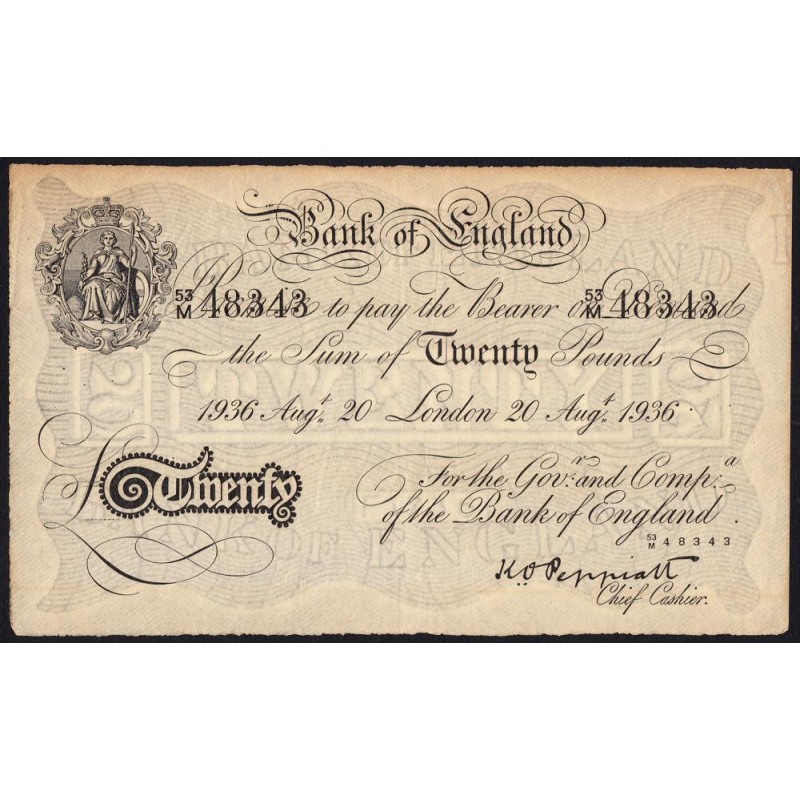 Bank of England
53/M 48343 to pay the Bearer on 53/M 48343
the Sum of Twenty Pounds
1936 Augt. 20 London 20 Augt. 1936
£ Twenty
For the Govr. and Compa.
of the Bank of England
53/M 48343
K.O. Peppiatt
Chief Cashier.